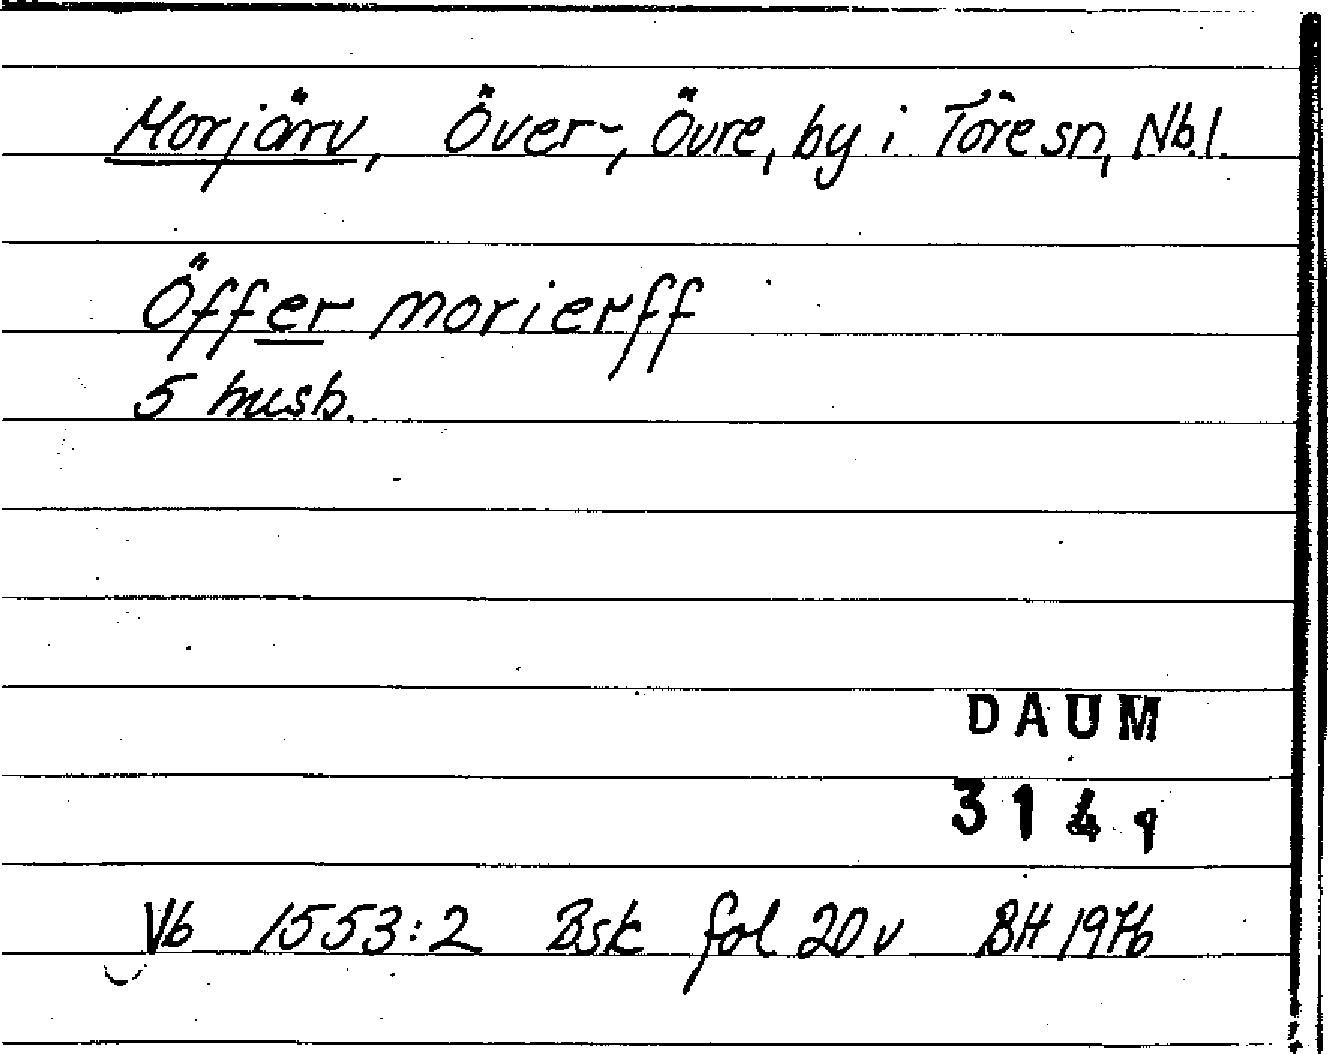 Morjärv, Över-, Övre, by i Töre sn, Nb.l.
Öffer morierff
5 husb.
DAUM
3149
Vb 1553:2 Bsk fol 20 v BH 1976